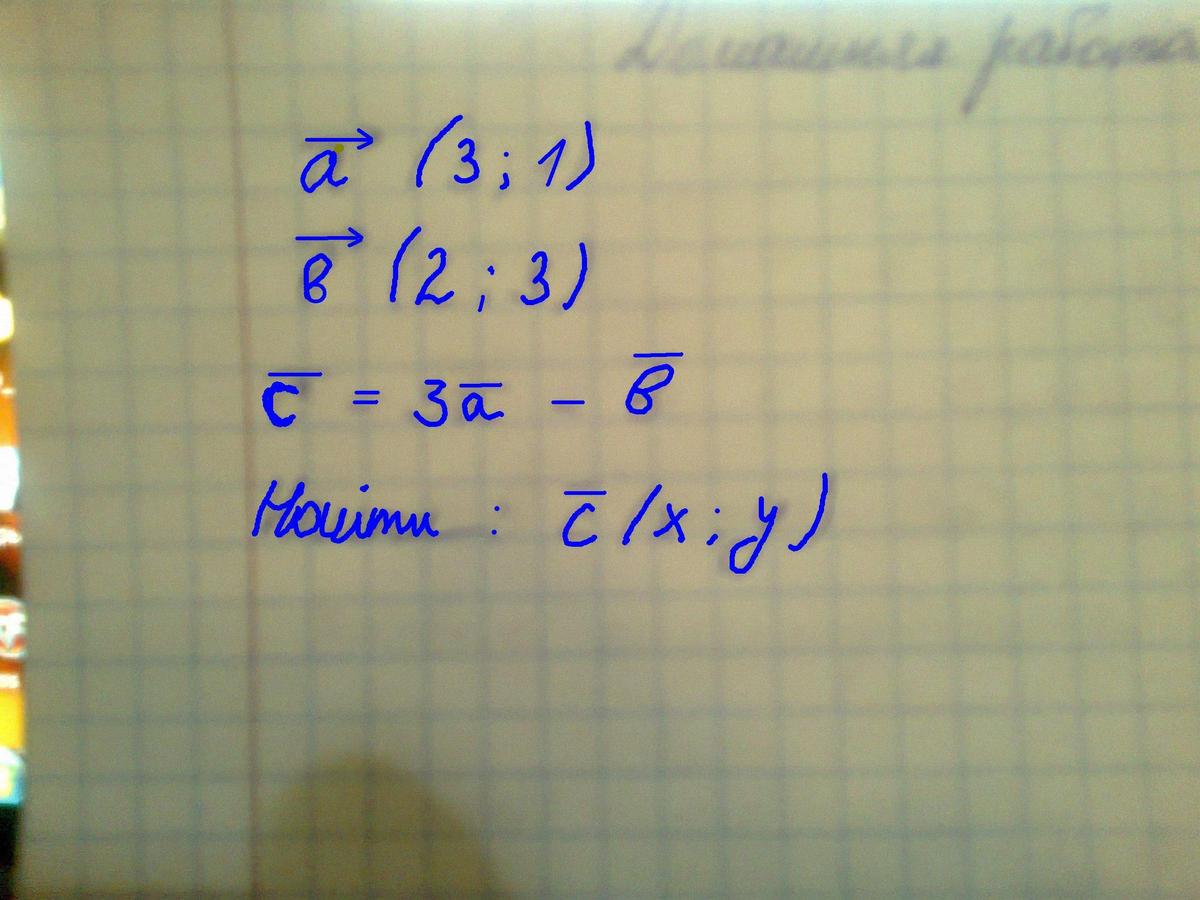 Домашняя работа
a⃗ (3; 1)
в⃗ (2; 3)
c̅ = 3a̅ − в̅
Найти : c̅ (x; y)